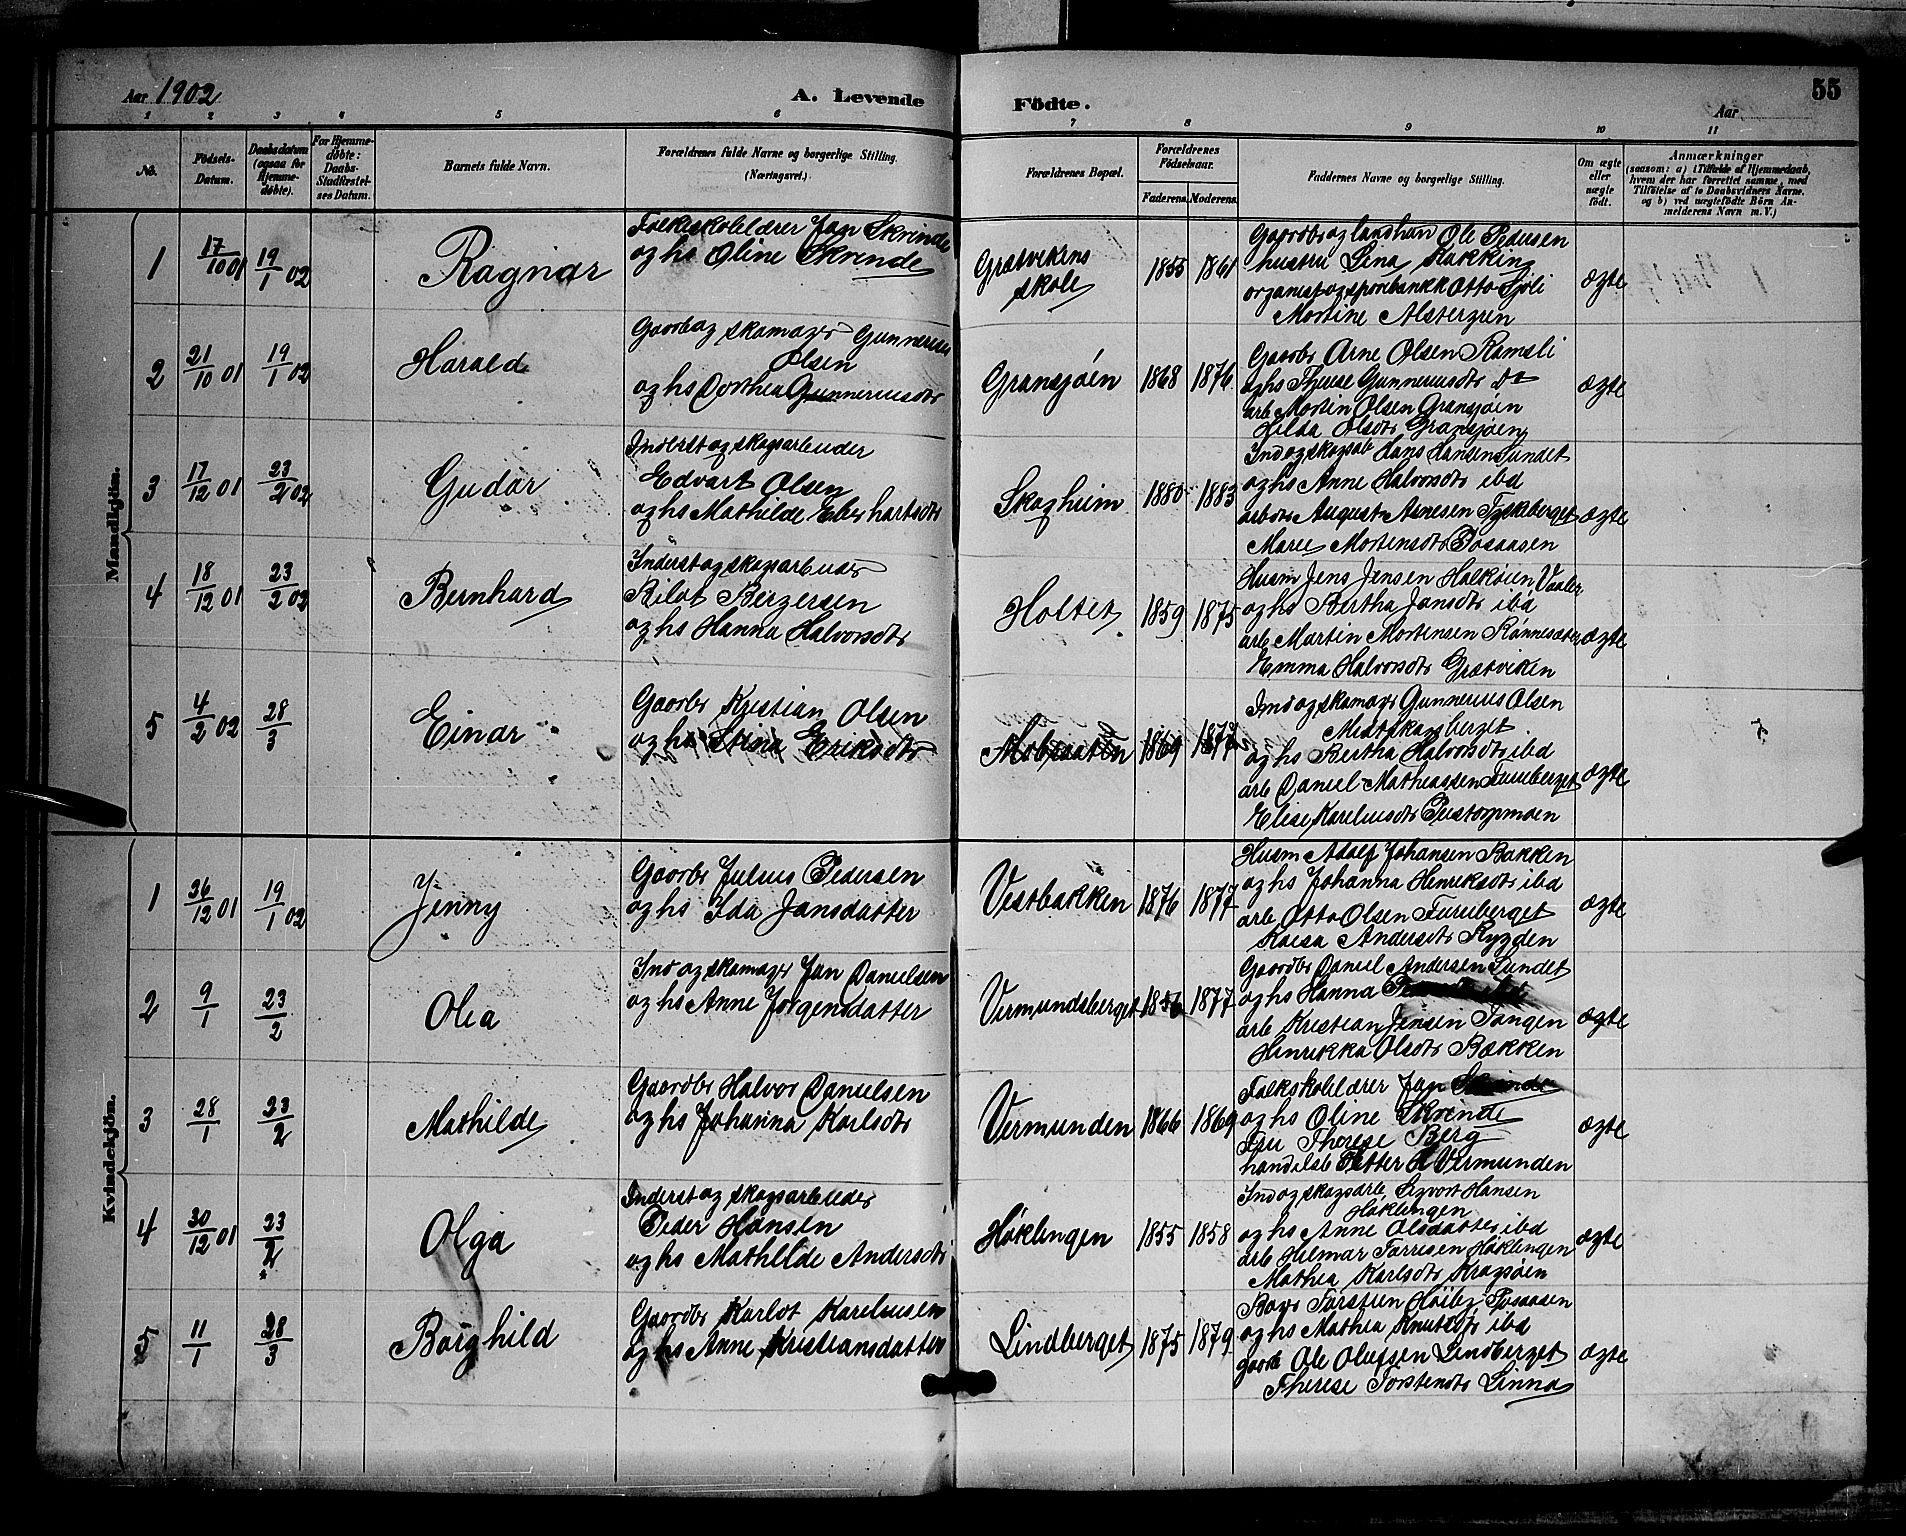 55
Aar 1902
A. Levende
Födte.
Aar
1 2 3 4 5 6 7 8 9 10 11
No.
Födsels-
Datum.
Daabsdatum
(ogsaa for
Hjemme-
döbte).
For Hjemme-
döbte:
Daabs-
Stadfæstel-
ses Datum.
Barnets fulde Navn.
Forældrenes fulde Navne og borgerlige Stilling.
(Næringsvei.)
Forældrenes Bopæl.
Forældrenes
Födselsaar.
Faderens. Moderens.
Faddernes Navne og borgerlige Stilling.
Om ægte
eller
uægte
födt.
Anmærkninger
(saasom: a) i Tilfælde af Hjemmedaab,
hvem der har forrettet samme, med
Tilföielse af to Daabsvidners Navne.
og b) ved uægtefödte Börn An-
melderens Navn m. V.)
Mandkjön.
1
17/10 01
19/1 02
Ragnar
Folkeskolelærer Jan Skrinde
og hs Oline Skrinde
Græsvikens
skole
1855 1861
Gaardbr og landhan Ole Pedersen
hustru Lina Kakking
organist og sparebankk Otto Sjøli
Martine Alstergren
ægte
2
21/10 01
19/1 02
Harald
Gaardb og skomager Gunnerius
Olsen
og hs Dorthea Gunneriusdtr
Gransjøen
1868 1876
Gaardbr Arne Olsen Ramsli
og hs Therese Gunneriusdtr Do
arb Martin Olsen Gransjøen
Hilda Olsdtr Gransjøen
ægte
3
17/12 01
23/2 02
Gudar
Inderst og skogsarbeider
Edvart Olsen
og hs Mathilde Eberhartsdtr
Skogheim
1880 1883
Ind og skogsarb Hans Hansen Sundet
og hs Anne Halvorsdtr ibd
August Arnesen Tyskeberget
Marie Mortensdtr Posaasen
ægte
4
18/12 01
23/2 02
Bernhard
Inderst og skogsarbeider
Rilot Bergersen
og hs Hanna Halvorsdtr
Holtet
1859 1875
Husm Jens Jensen Halkøien Vaaler
og hs Bertha Jansdtr ibd
arb Martin Mortensen Rønnesæter
Emma Halvorsdtr Græsviken
ægte
5
4/2 02
28/3
Einar
Gaardbr Kristian Olsen
og hs Stina Eriksdtr
1869 1877
Ind og skomager Gunnerius Olsen
Midtskogberget
og hs Bertha Halvorsdtr ibd
arb Daniel Mathiassen Furuberget
Elise Kareliusdtr
ægte
Kvindekjön.
1
26/12 01
19/1 02
Jenny
Gaardbr Julius Pedersen
og hs Ida Jansdatter
Vestbakken
1876 1877
Husm Adolf Johansen Bakken
og hs Johanna Henriksdtr ibd
arb Otto Olsen Furuberget
Kaisa Andersdtr Rygden
ægte
2
9/1
23/2
Olea
Ind og skomager Jan Danielsen
og hs Anne Jørgensdatter
Vermundsberget
1856 1877
Gaardbr Daniel Andersen Sundet
og hs Hanna
arb Kristian Jensen Tangen
Henrikka Olsdtr Bækken
ægte
3
28/1
23/2
Mathilde
Gaardbr Halvor Danielsen
og hs Johanna Karlsdtr
Vermunden
1866 1869
Folkskolelærer Jan Skrinde
og hs Oline Skrinde
Fru Therese Berg
handelsb Petter H Vermunden
ægte
4
30/12 01
23/2
Olga
Inderst og skogsarbeider
Peder Hansen
og hs Mathilde Andersdtr
Høklingen
1855 1858
Ind og skogsarb Sigvart Hansen
Høklingen
og hs Anne Olsdatter ibd
arb Helmar Tarresen Høklingen
Mathea Karlsdtr Kragsøen
ægte
5
11/1
28/3
Borghild
Gaardbr Karlot Kareliusen
og hs Anne Kristiansdatter
Lindberget
1875 1879
Torsten Høiby Posaasen
og hs Mathea Knutsdtr ibd
gaardb Ole Olufsen Lindberget
Therese Torstensdtr Linna
ægte